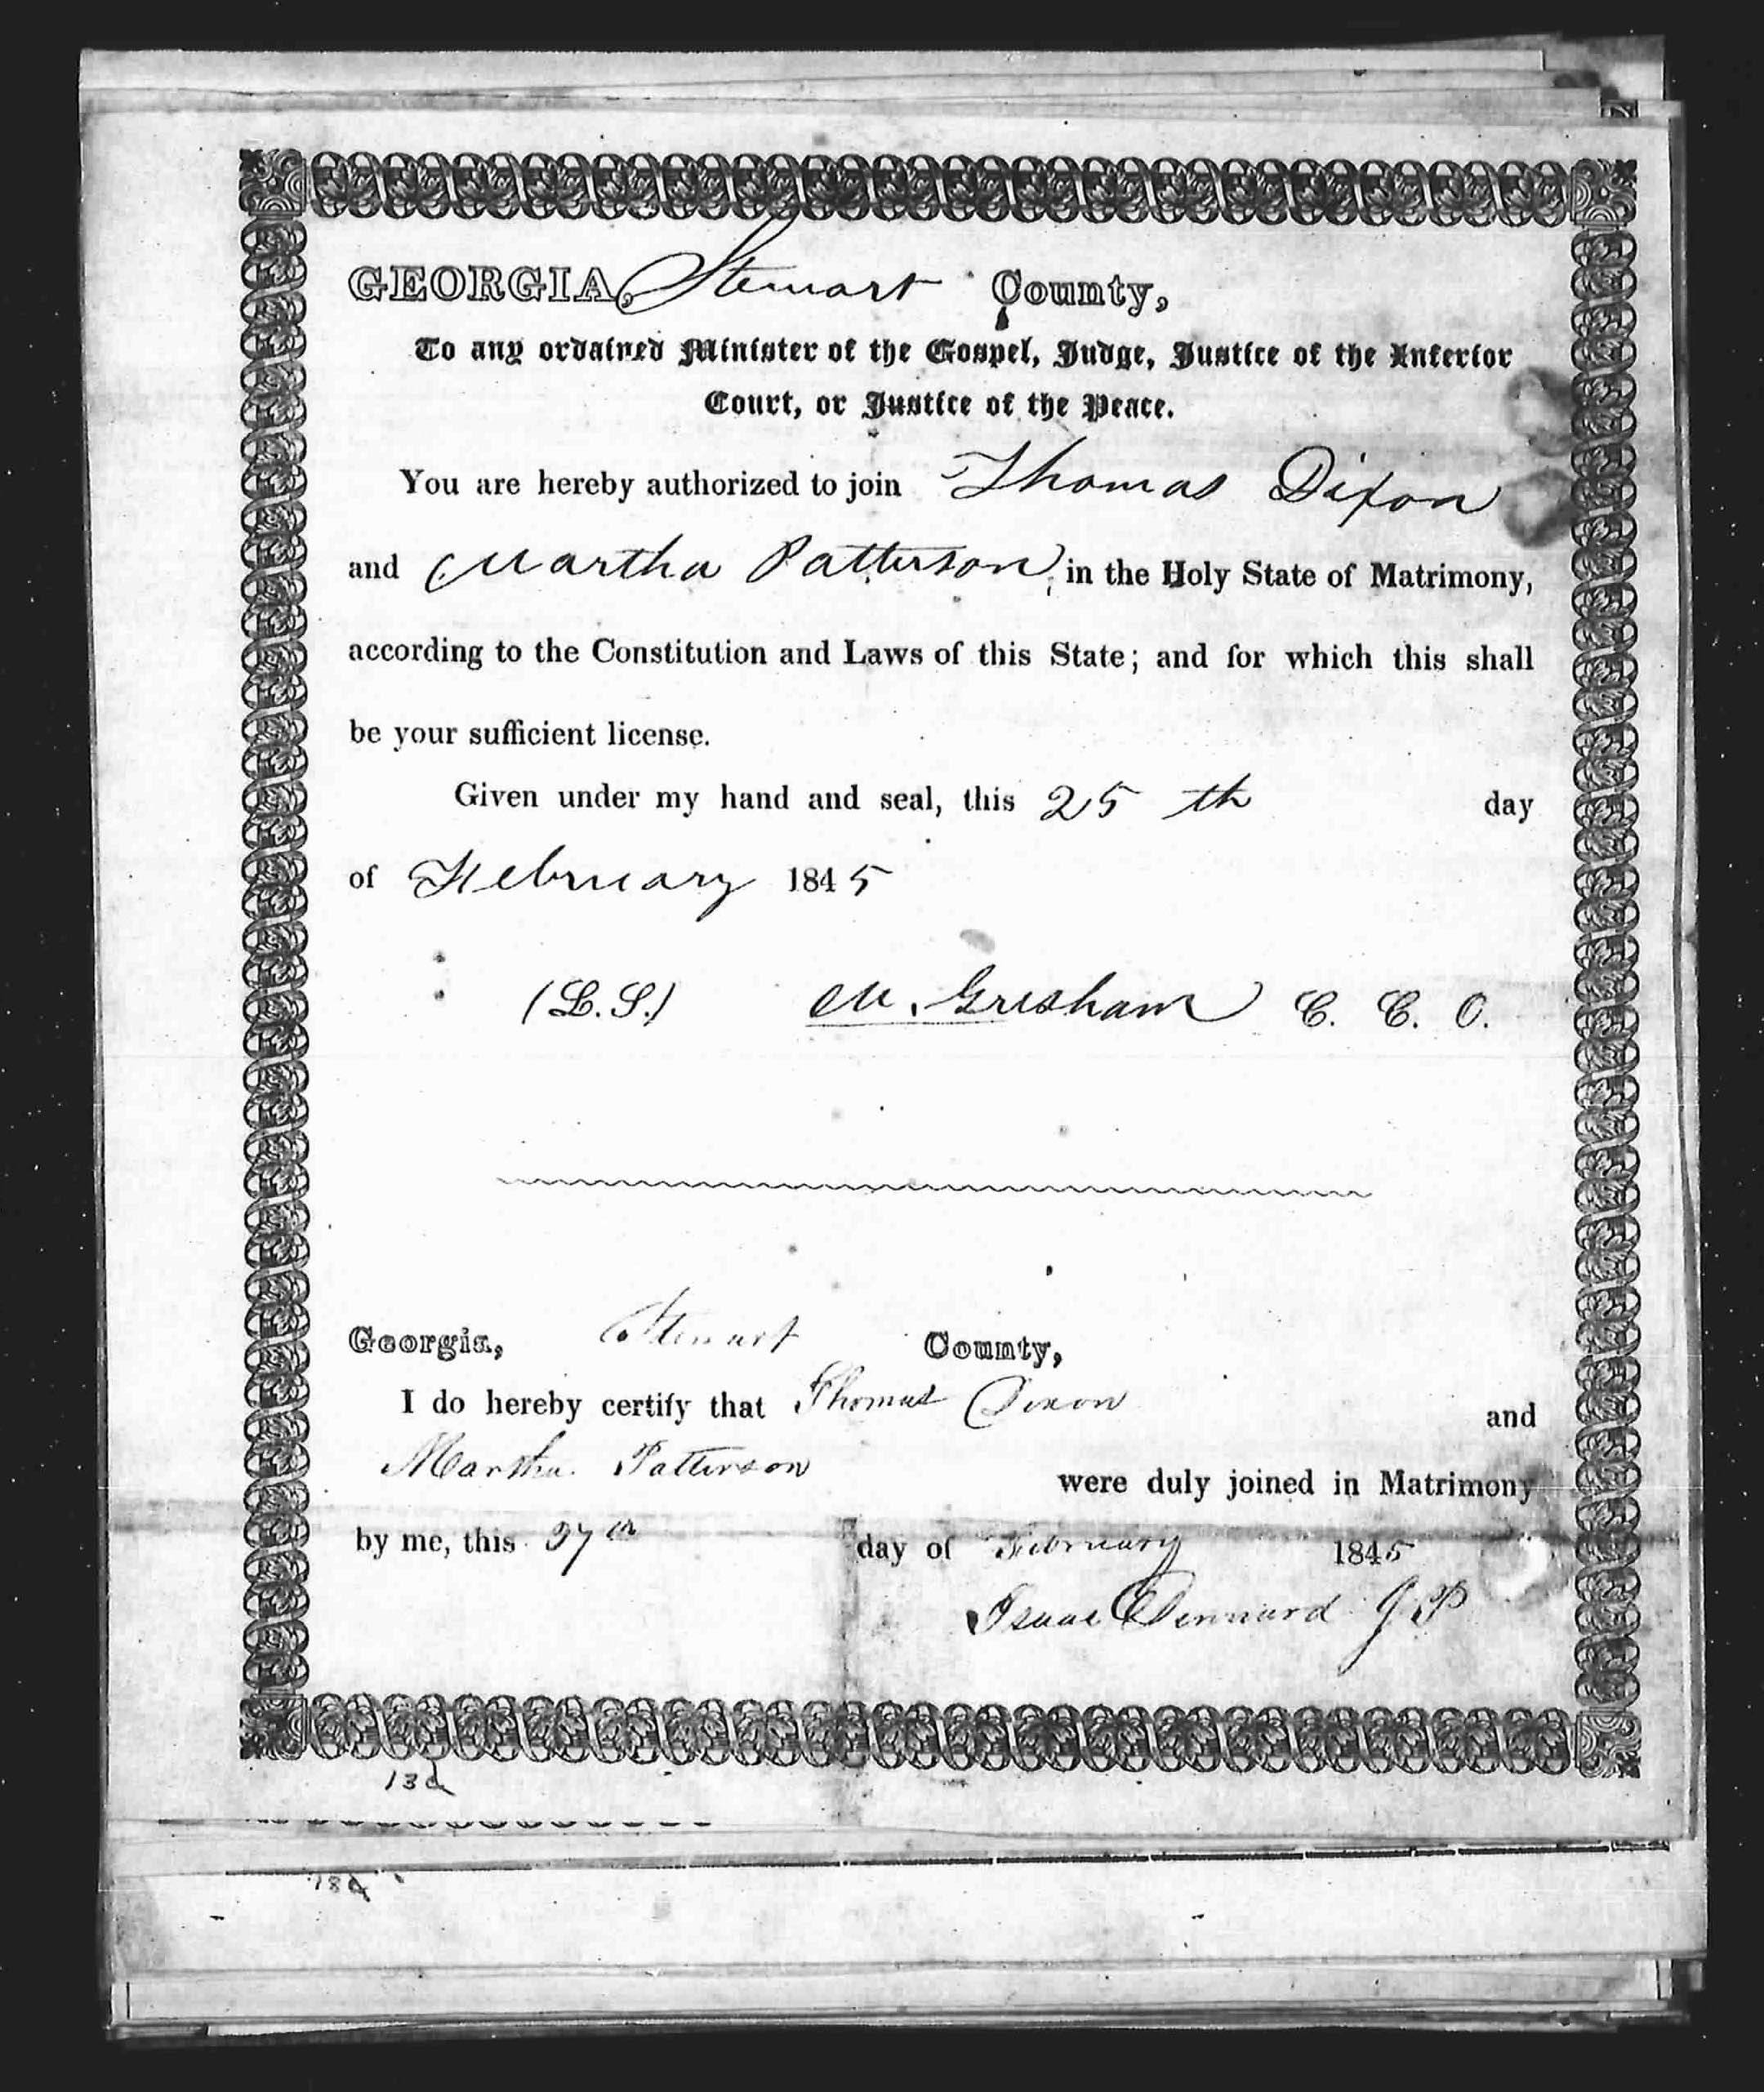 GEORGIA, Stewart County,
To any ordained Minister of the Gospel, Judge, Justice of the Inferior
Court, or Justice of the Peace.
You are hereby authorized to join Thomas Dixon
and Martha Patterson in the Holy State of Matrimony,
according to the Constitution and Laws of this State; and for which this shall
be your sufficient license.
Given under my hand and seal, this 25 th day
of February 1845
(L.S.) M. Gresham C. C. O.
Georgia, Stewart County,
I do hereby certify that Thomas Dixon and
Martha Patterson were duly joined in Matrimony
by me, this 27th day of February 1845
Isaac Dennard J.P